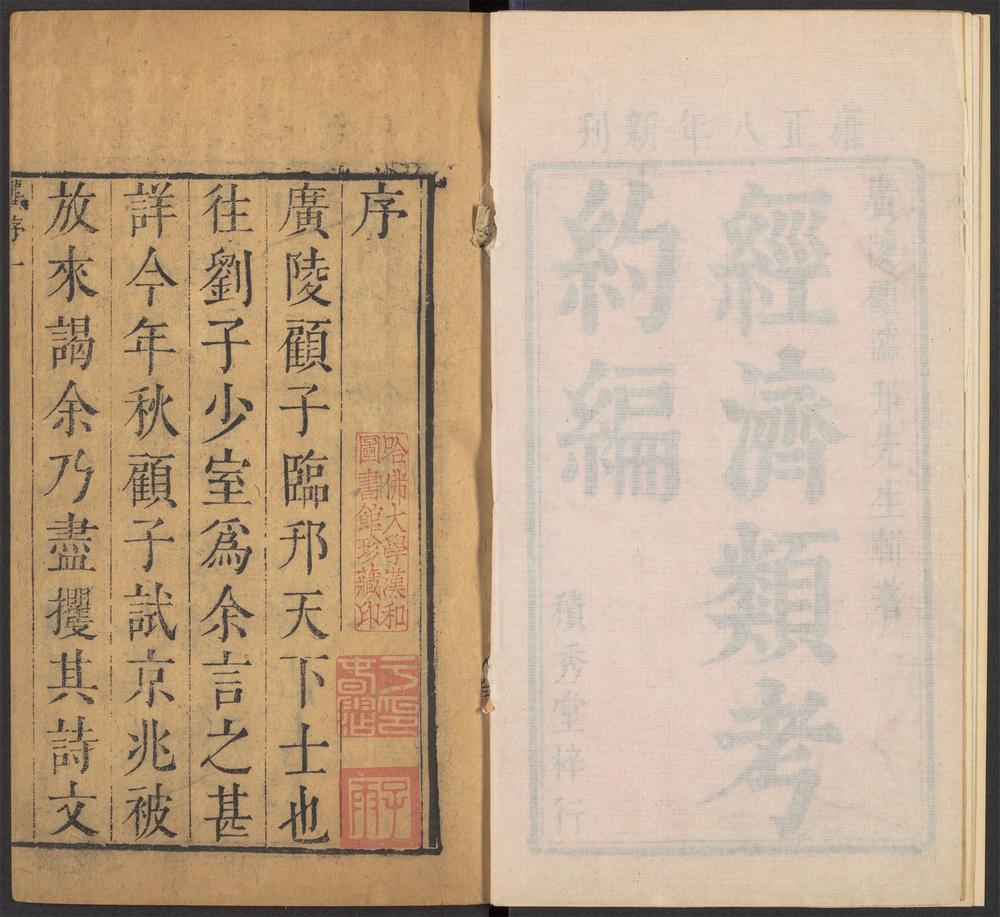 雍正八年新刊
廣陵顧臨邗先生輯著
經濟類考
約編
積秀堂梓行
序
哈佛大學漢和
圖書館珍藏印
廣陵顧子臨邗天下士也
往劉子少室爲余言之甚
詳今年秋顧子試京兆被
放來謁余乃盡攫其詩文
序一